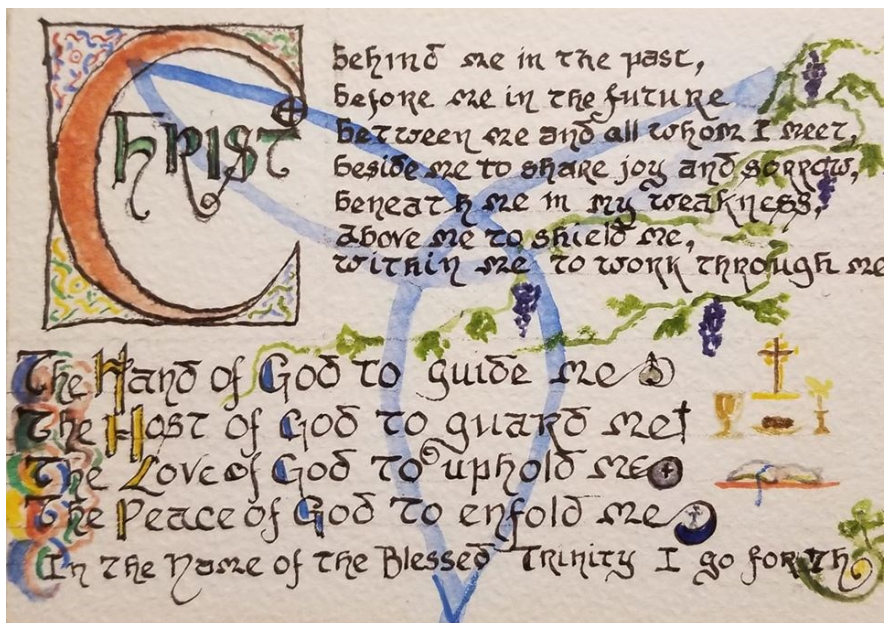 Christ
behind me in the past,
before me in the future
between me and all whom I meet,
beside me to share joy and sorrow,
beneath me in my weakness,
above me to shield me,
within me to work through me
The Hand of God to guide me
The Host of God to guard me
The Love of God to uphold me
The Peace of God to enfold me
In the Name of the Blessed Trinity I go forth